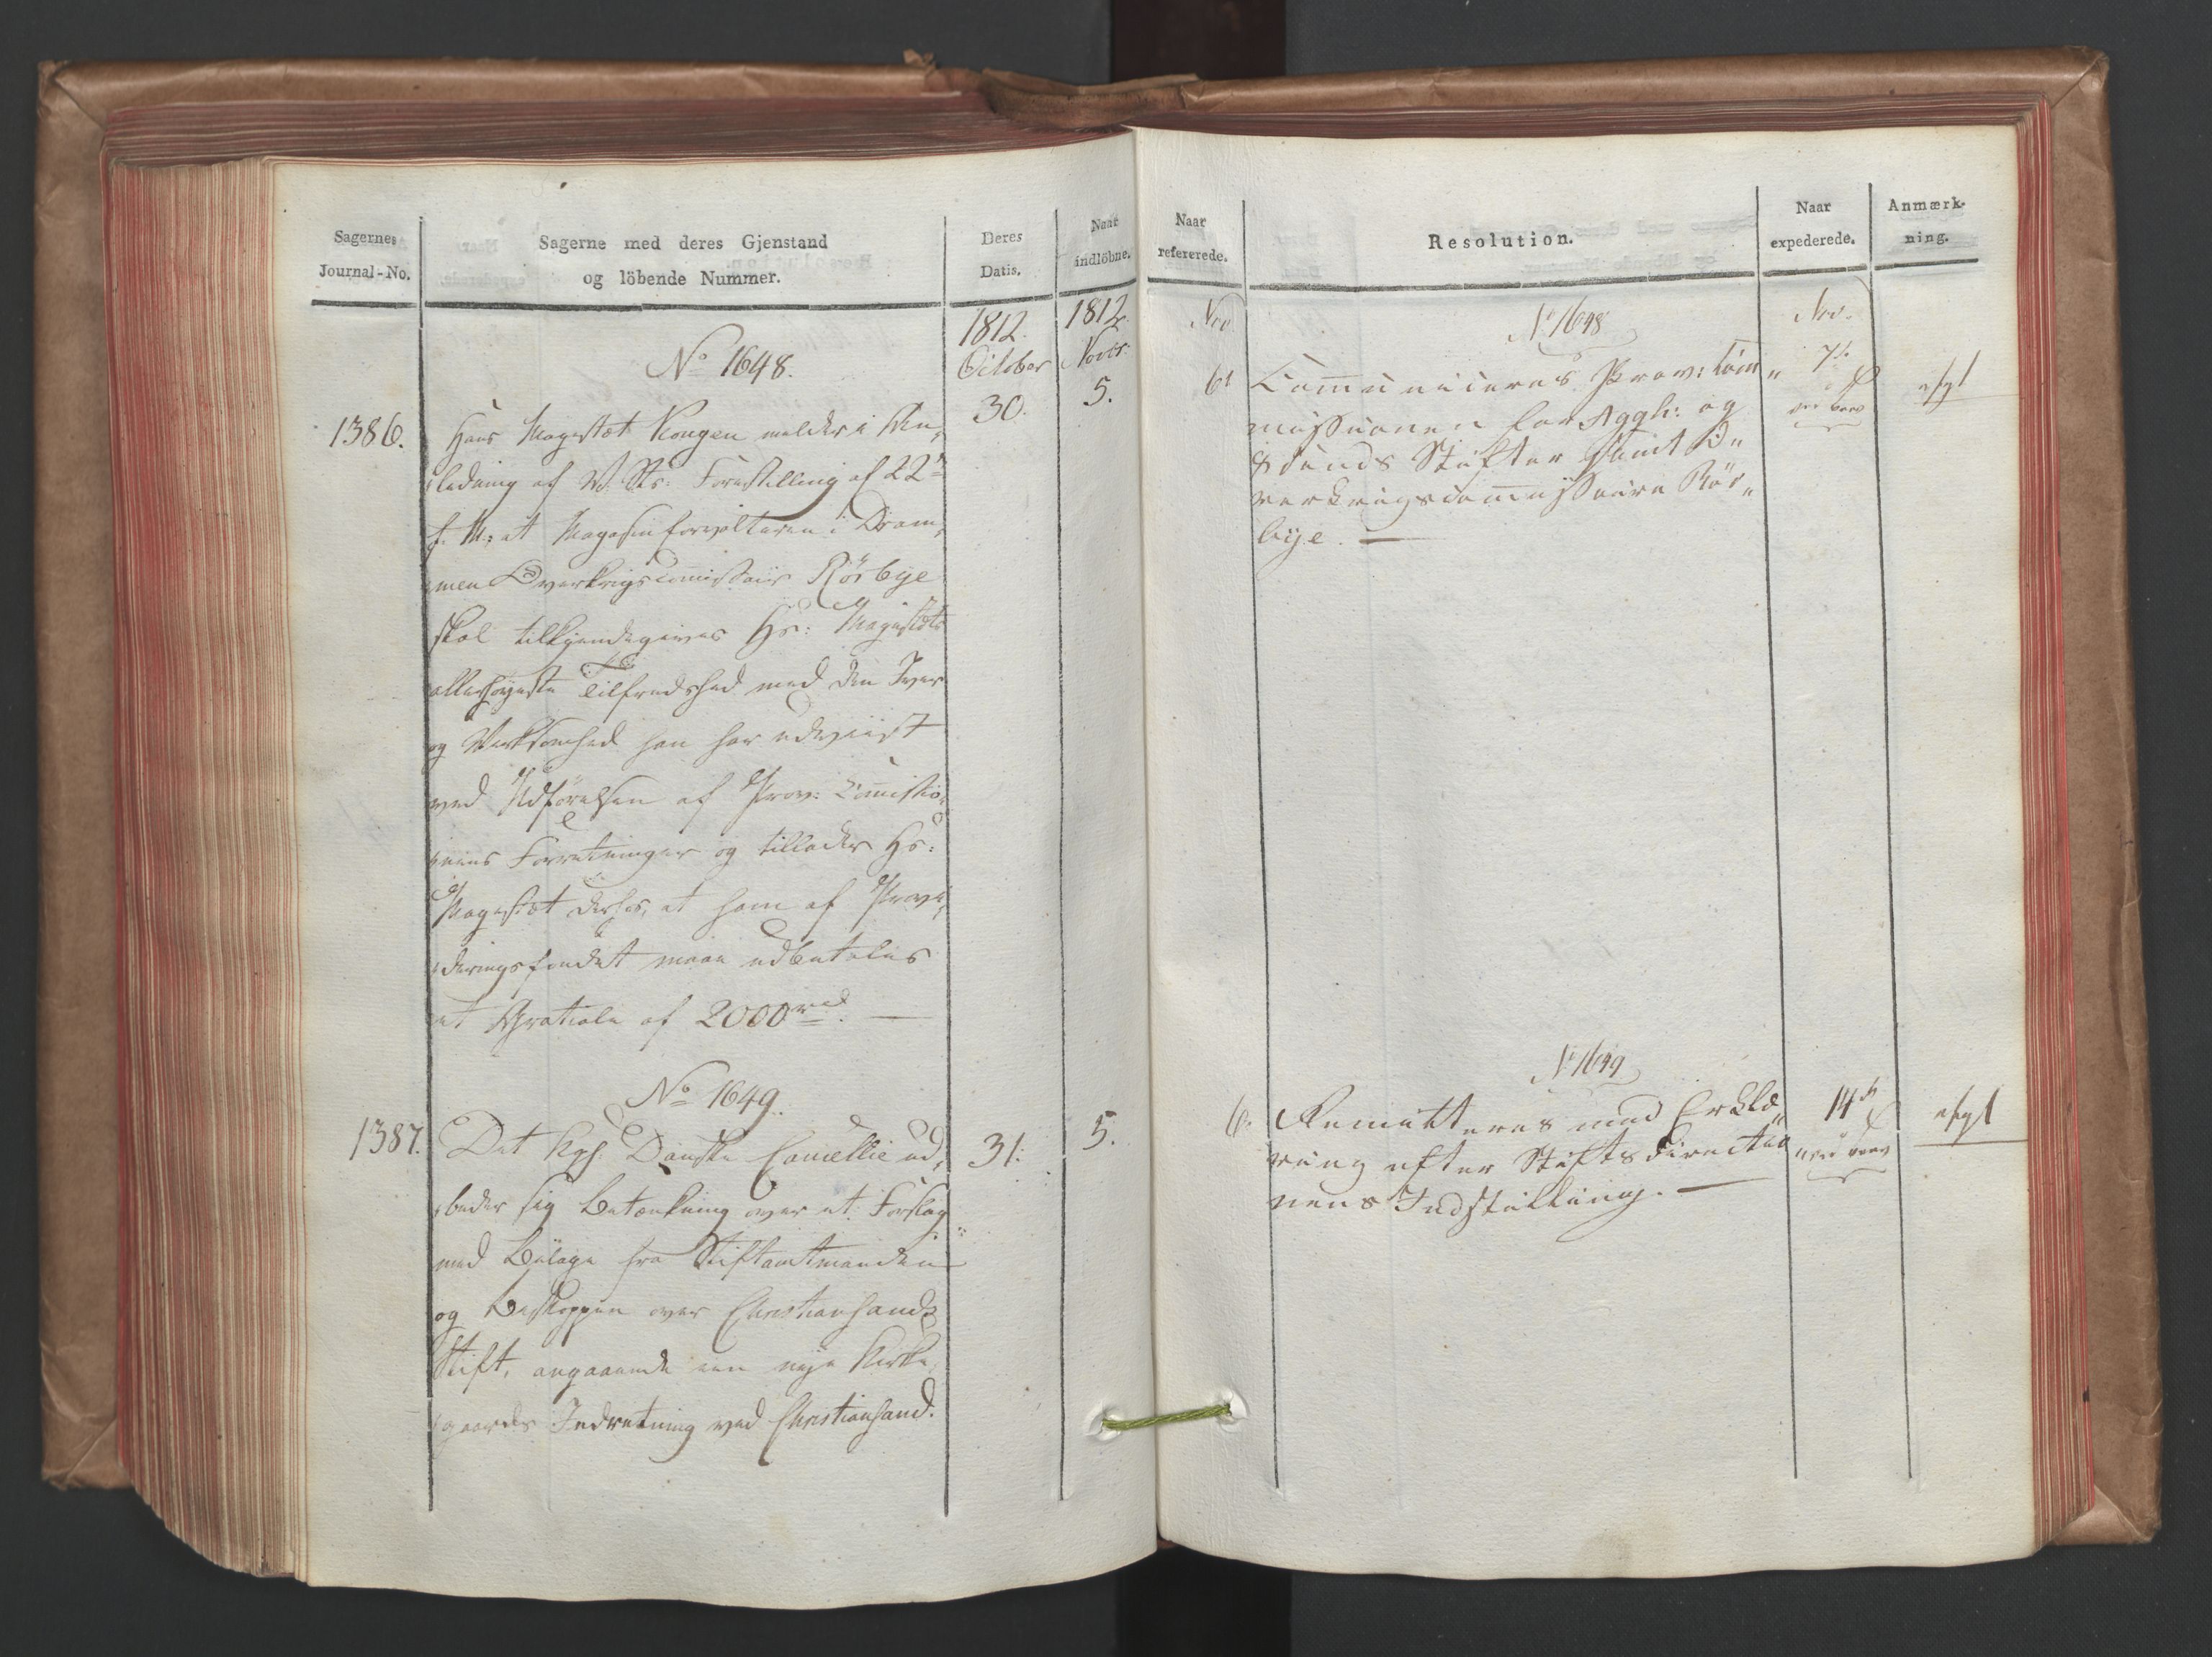 Sagernes
Journal-No.
Sagerne med deres Gjenstand
og löbende Nummer.
Deres
Datis.
Naar
indlöbne.
1812.
October
1812.
Novbr.
No 1648.
1386.
30.
5.
Hans Magestæt Kongen melder i An„
„ledning af V. Sts: Forestilling af 22de
f. M: at Magasinforvalteren i Dram„
„men Overkrigscommissair Rörbye
skal tilkjendegives Hs: Magestæts
allerhøyeste Tilfredshed med den Iver
og Virksomhed han har udviist
ved Udförelsen af Prov: Commissio„
„nens Forretninger og tillader Hs:
Magestæt derhos, at ham af Provi„
„deringsfondet maae udbetales
et Gratiale af 2000 rd. —
No 1649.
1387.
31.
5.
Det Kgl: Danske Cancellie ud„
„beder sig Betænkning over et Forslag
med Bilage fra Stiftamtmanden
og Biskoppen over Christiansands
Stift, angaaende en nye Kirke„
„gaards Indretning ved Christiansand.
Naar
refererede.
Resolution.
Naar
expederede.
Anmærk-
ning.
Nov.
No 1648
Nov.
6t
7de
afgl
Communiceres Prov: Com„
missionen for Aggh: og
Stifter samt O„
verkrigscommissaire Rör„
bye. —
No 1649
6.
14de
afgl
Remitteres med Erklæ„
ring efter Stiftsdirectio
nens Indstilling. —